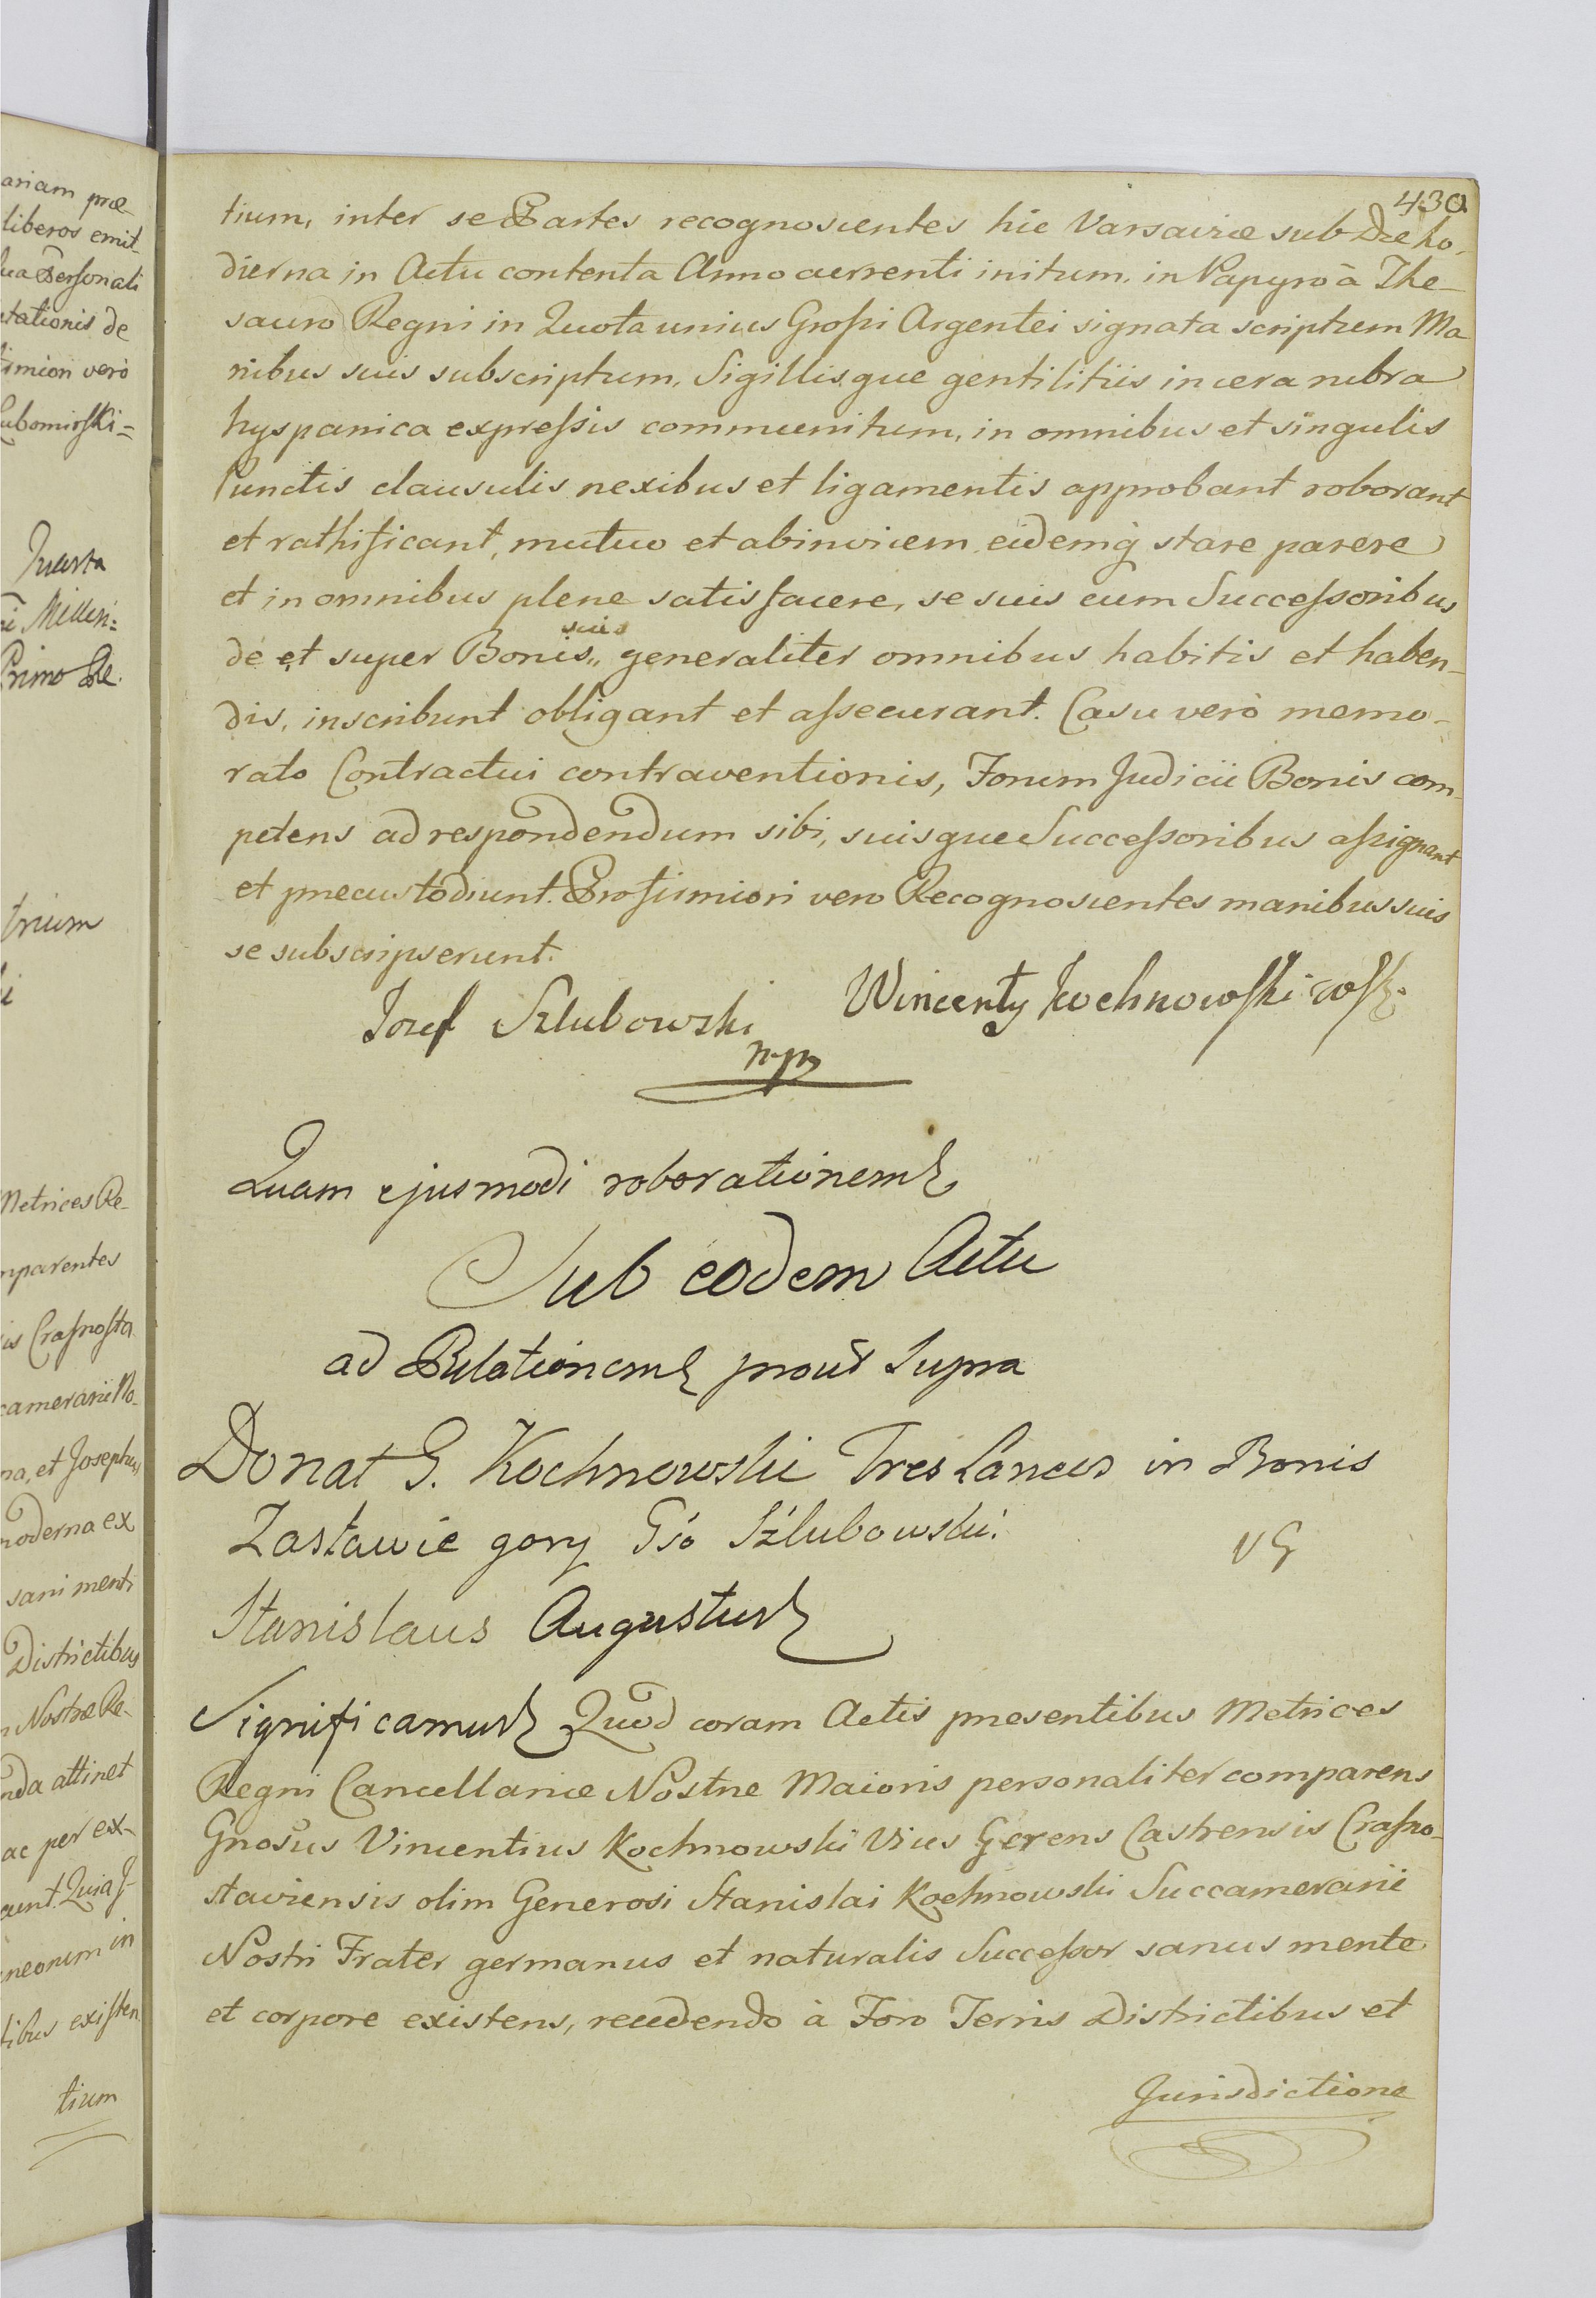 ariam præ-
liberos emit-
sua Personali
tationis de
simiori verò
Lubomirski=
Quarta
Millesi=
Primo Re.
trium
i
Metrices Re-
mparentes
is Crasnosta
camerarii No-
na, et Josephus
moderna ex
sani menti
Districtibus
Nostræ Re-
nda attinet
ac per ex-
aunt. Quia J-
neorum in
tibus existen
tium
430
tium, inter se Partes recognoscentes hic Varsaviæ sub Die ho-
dierna in Actu contenta Anno currenti initum, in Papyro à The-
sauro Regni in Quota unius Grossi Argentei signata scriptum Ma
nibus suis subscriptum, Sigillisque gentilitiis in cera rubra
hyspanica expressis communitum, in omnibus et singulis
Punctis clausulis nexibus et ligamentis approbant roborant
et rathificant, mutuo et abinvicem eidemq stare parere
et in omnibus plene satisfacere, se suis cum Successoribus
de et super Bonis,, suis generaliter omnibus habitis et haben-
dis, inscribunt obligant et assecurant. Casu verò memo-
rato Contractui contraventionis, Forum Judicii Bonis com-
petens ad respondendum sibi, suisque Successoribus assignant
et præcustodiunt. Pro firmiori vero Recognoscentes manibus suis
se subscripserunt.
Jozef Szlubowski Wincenty Kochnowski
mp
Quam ejusmodi roborationem
Sub eodem Actu
ad Relationem prout supra
Donat G. Kochnowski Tres Laneos in Bonis
Zastawie gory Gso Szlubowski.
VG
Stanislaus Augustus
Significamus Quod coram Actis præsentibus Metrices
Regni Cancellariæ Nostræ Maioris personaliter comparens
Gnosus Vincentius Kochnowski Vices Gerens Castrensis Crasno-
staviensis olim Generosi Stanislai Kochnowski Succamerarii
Nostri Frater germanus et naturalis Successor sanus mente
et corpore existens, recedendo à Foro Terris Districtibus et
Jurisdictione